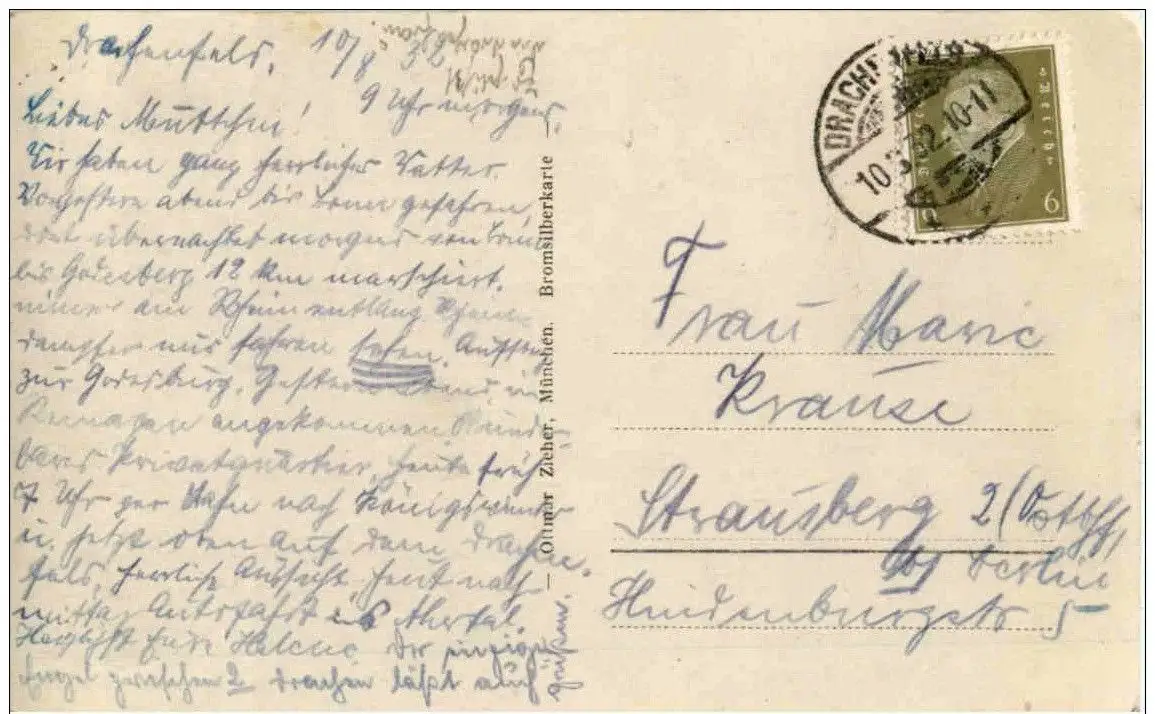 Drachenfels, 10/8 32
9 Uhr morgens.
Liebes Muttchen!
Wir haben ganz herrliches Wetter.
Vorgestern abend bis Bonn gefahren,
dort übernachtet morgens von Bonn
bis Godesberg 12 km marschiert.
immer am Rhein entlang, Rhein-
dampfer fahren sehen. Aufstieg
zur Godesburg. Gestern Abend in
Remagen angekommen Wunder-
bares Privatquartier, heute früh
7 Uhr per Bahn nach Königswinter
u. jetzt oben auf dem Drachen-
fels, herrliche Aussicht. Heut nach-
mittag Autofahrt ins Ahrtal.
Herzlichst Eure Helene. Der einzige
Engel zwischen 2 Drachen läßt auch
grüßen.
— Ottmar Zieher, München. Bromsilberkarte —
DRACHENFELS
10.8.32.10-11
6
Frau Marie
Krause
Strausberg 2 (Ostbhf)
bei Berlin
Hindenburgstr 5